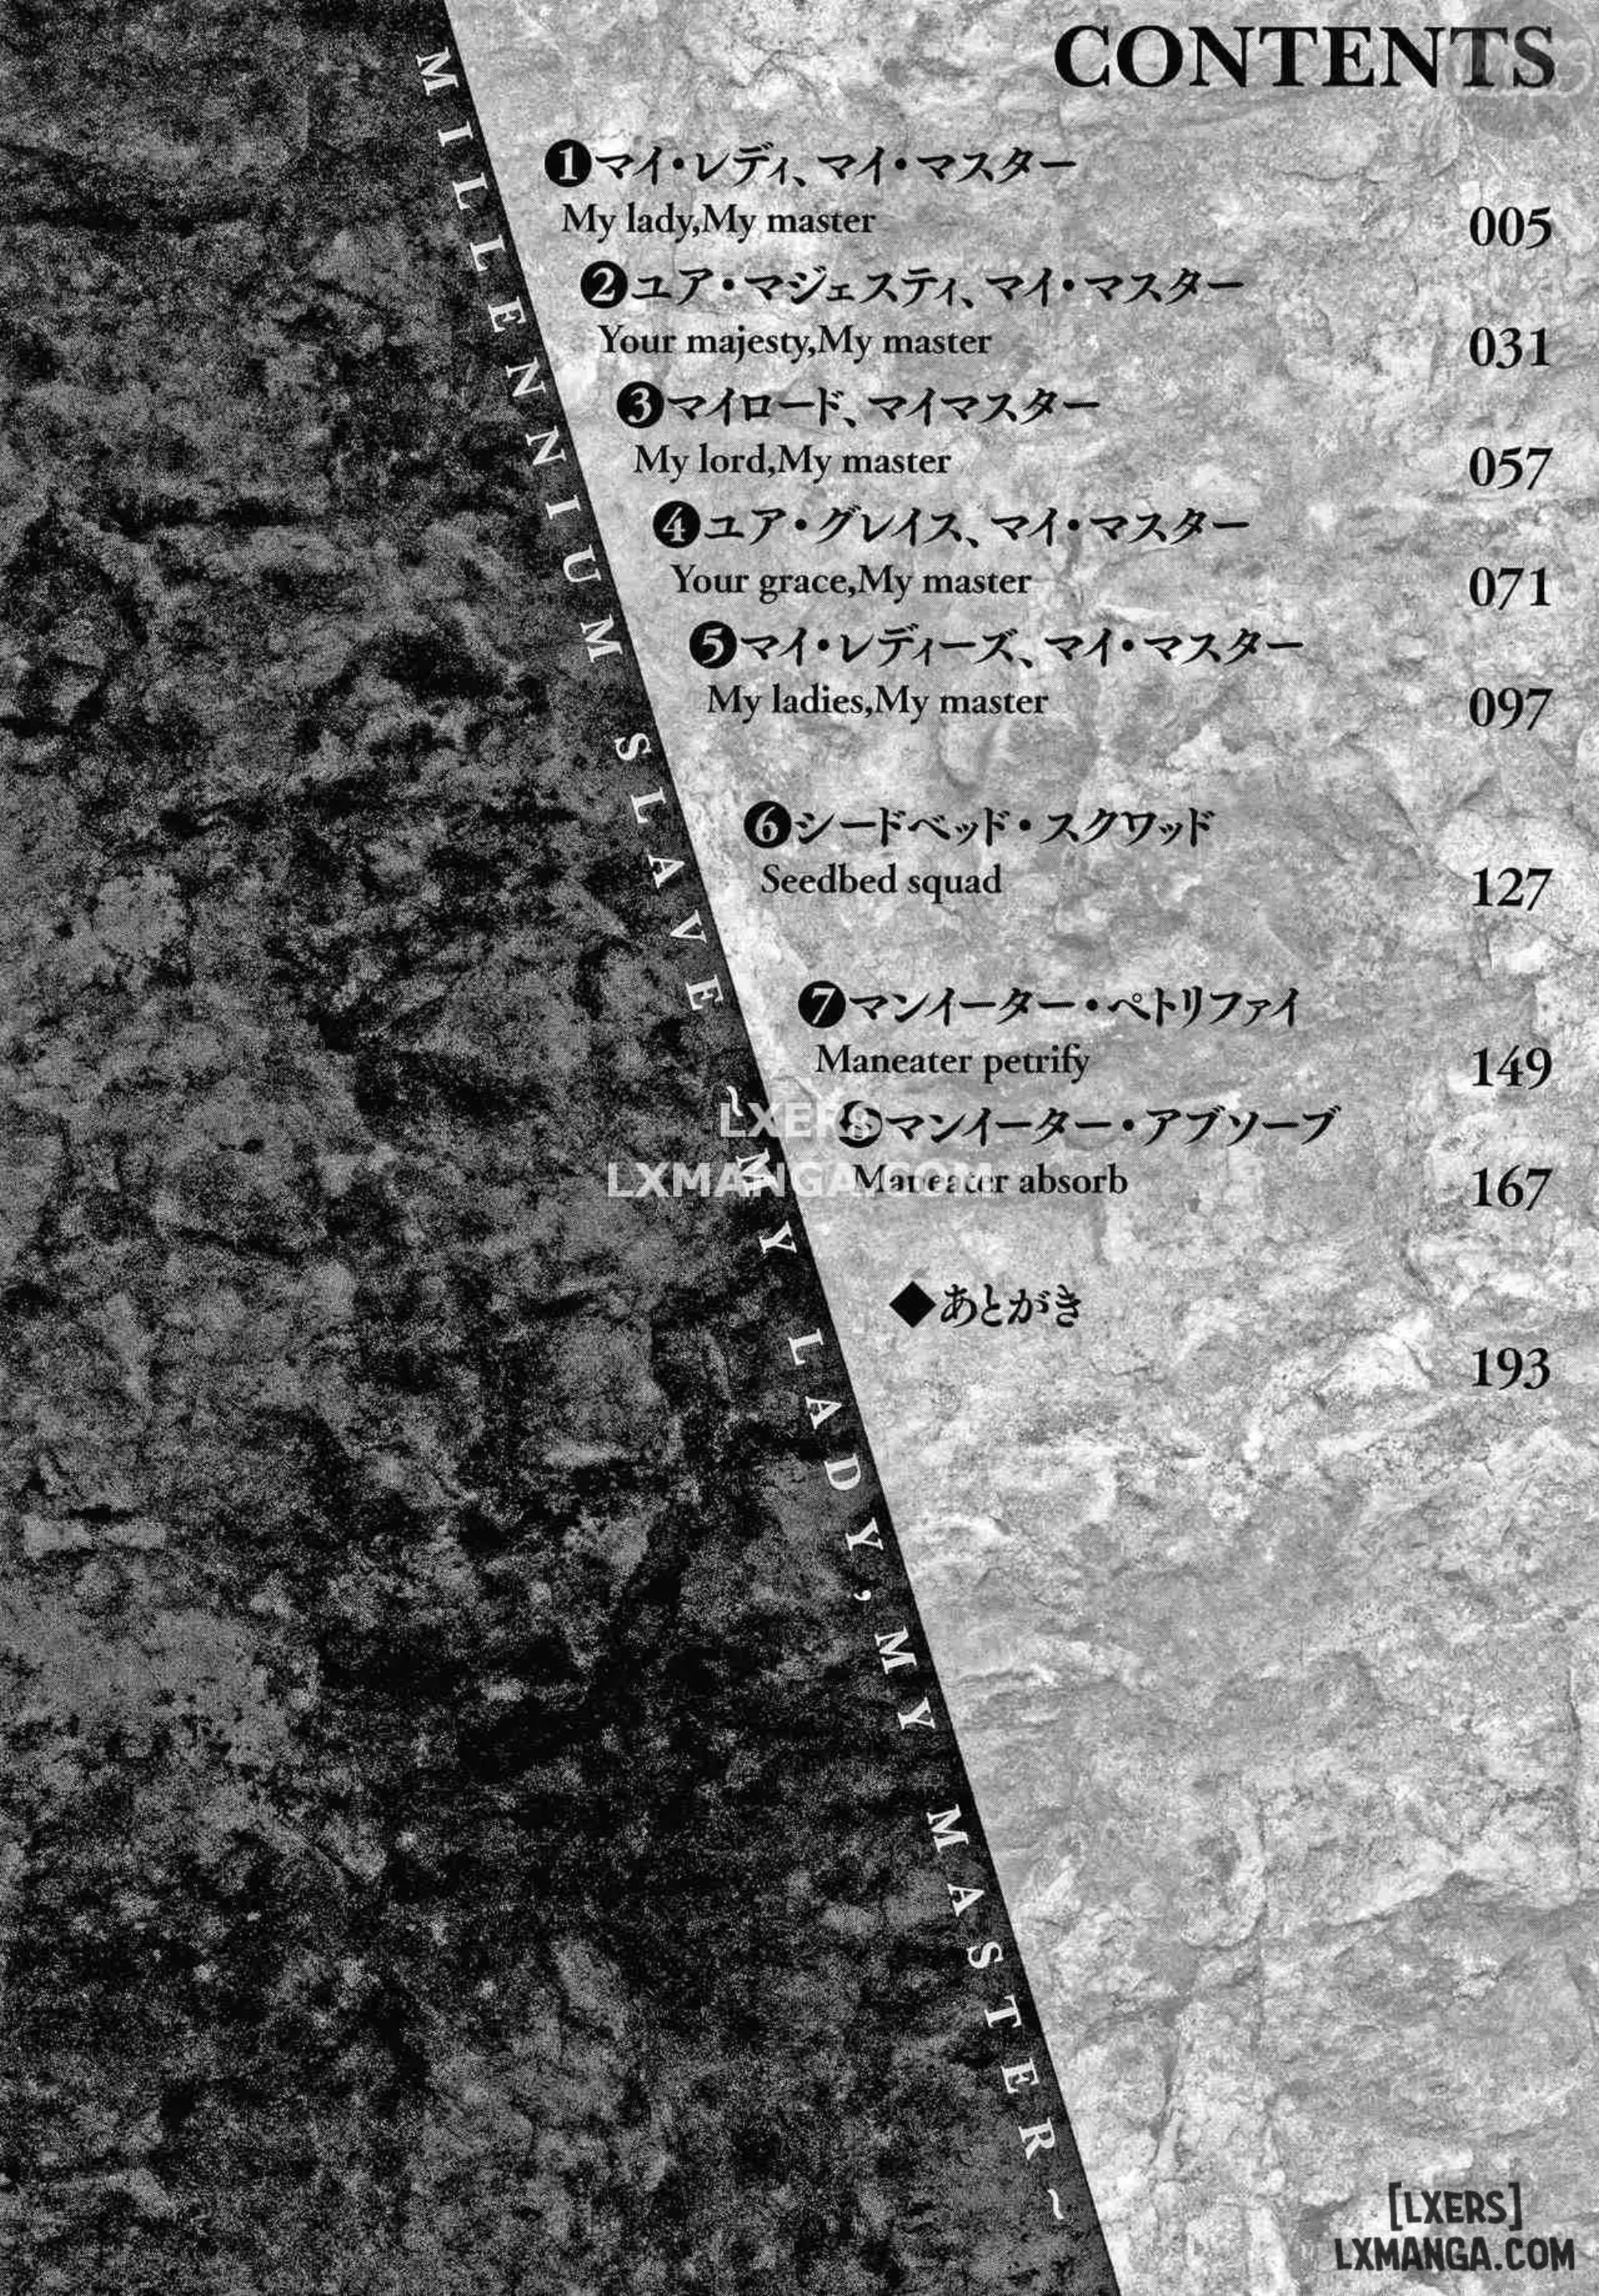 CONTENTS
❶マイ・レディ、マイ・マスター
My lady,My master
005
❷ユア・マジェスティ、マイ・マスター
Your majesty,My master
031
❸マイロード、マイマスター
My lord,My master
057
❹ユア・グレイス、マイ・マスター
Your grace,My master
071
❺マイ・レディーズ、マイ・マスター
My ladies,My master
097
❻シードベッド・スクワッド
Seedbed squad
127
❼マンイーター・ペトリファイ
Maneater petrify
149
❽マンイーター・アブソーブ
Maneater absorb
167
◆あとがき
193
MILLENNIUM SLAVE ~MY LADY, MY MASTER~
LXERS
LXMANGA.COM
[LXERS]
LXMANGA.COM